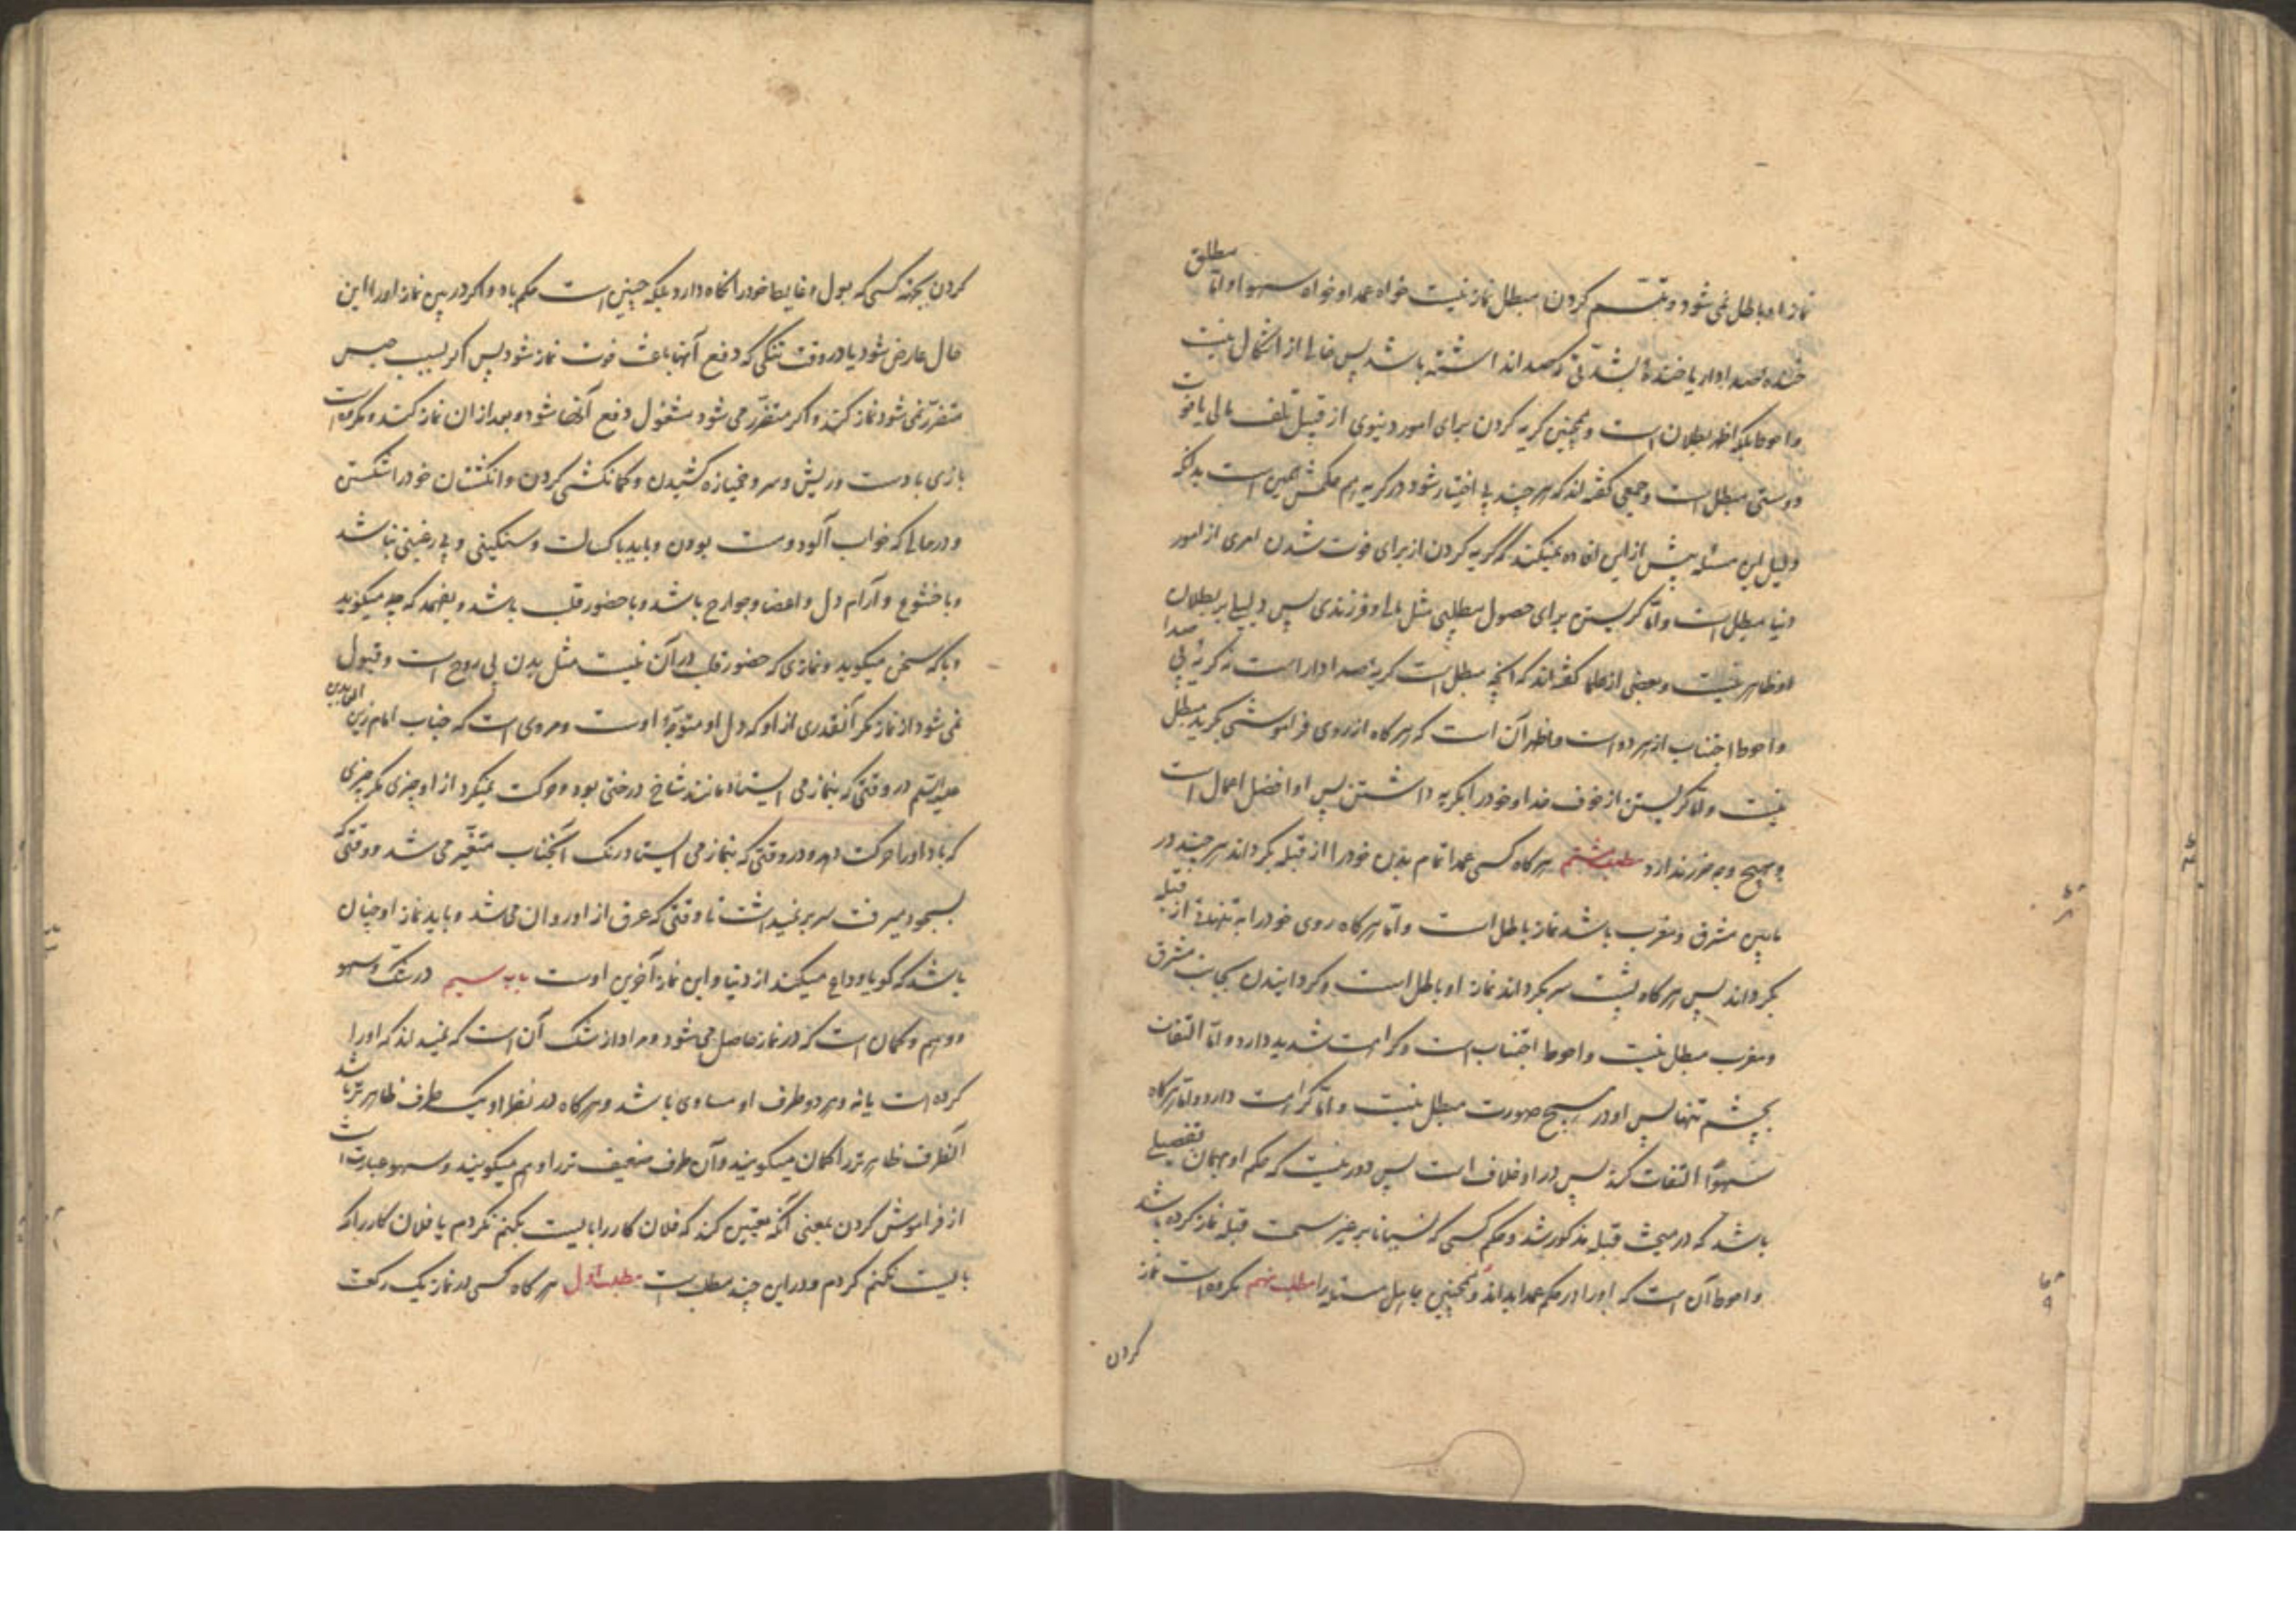 نماز او باطل نمی شود و تبسّم کردن مبطل نماز نیست خواه عمدا و خواه سهوا و امّا مطلق
خنده صدادار یا خندهٔ بشدّتی که صدا نداشته باشد پس خالی از اشکال نیست
و احوط بلکه اظهر بطلان است و همچنین گریه کردن برای امور دنیوی از قبیل تلف مالی یا فوت
دوستی مبطل است و جمعی گفته اند که هر چند بی اختیار شود در گریه هم حکمش همین است بدانکه
دلیل این مسئله بیش از این افاده نمیکند که گریه کردن از برای فوت شدن امری از امور
دنیا مبطل است و امّا گریستن برای حصول مطلبی مثل مال و فرزندی پس دلیل بر بطلان
او ظاهر نیست و بعضی از علما گفته اند که آنچه مبطل است گریهٔ صدادار است نه گریهٔ بی صدا
و احوط اجتناب از هر دو است و اظهر آن است که هر گاه از روی فراموشی بگرید مبطل
نیست و امّا گریستن از خوف خدا و خود را بگریه داشتن پس او افضل اعمال است
و هیچ وجه ضرر ندارد مطلب هشتم هر گاه کسی عمدا تمام بدن خود را از قبله بگرداند هر چند در
مابین مشرق و مغرب باشد نماز باطل است و امّا هر گاه روی خود را به تنهائی از قبله
بگرداند پس هر گاه پشت سر بگرداند نماز او باطل است و گردانیدن بجانب مشرق
و مغرب مبطل نیست و احوط اجتناب است و کراهت شدید دارد و امّا التفات
بچشم تنها پس او در هیچ صورت مبطل نیست و امّا کراهت دارد و امّا هر گاه
سهوًا التفات کند پس در او خلاف است پس دور نیست که حکم او همان تفصیلی
باشد که در مبحث قبله مذکور شد و حکم کسی که نسیانا بر غیر سمت قبله نماز کرده باشد
و احوط آن است که او را در حکم عمد بداند و همچنین جاهل مسئله را مطلب نهم مکروه است نماز
کردن
کردن بجهة کسی که بول و غایط خود را نگاه دارد بلکه چنین است حکم باد و اگر در بین نماز او را این
حال عارض شود یا در وقت تنگی که دفع آنها باعث فوت نماز شود پس اگر بسبب حبس
متضرّر نمی شود نماز کند و اگر متضرّر می شود مشغول دفع آنها شود و بعد از ان نماز کند و مکروه است
بازی با دست و ریش و سر و خمیازه کشیدن و کمانکشی کردن و انگشتان خود را شکستن
و در حالی که خواب آلود و مست بودن و باید با کسالت و سنگینی و بی رغبتی نباشد
و با خشوع و آرام دل و اعضا و جوارح باشد و با حضور قلب باشد و بفهمد که چه میگوید
و با که سخن میگوید و نمازی که حضور قلب در آن نیست مثل بدن بی روح است و قبول
نمی شود از نماز مگر آنقدری از او که دل او متوجّه اوست و مروی است که جناب امام زین العابدین
علیه السّلم در وقتی که بنماز می ایستاد مانند شاخ درختی بود و حرکت نمیکرد از او چیزی مگر چیزی
که باد او را حرکت دهد و در وقتی که بنماز می ایستاد رنگ آنجناب متغیّر می شد و وقتی که
بسجود میرفت سر بر نمیداشت تا وقتی که عرق از او روان می شد و باید نماز او چنان
باشد که گویا وداع میکند از دنیا و این نماز آخرین اوست باب سیم در شک و سهو
و وهم و گمان است که در نماز حاصل می شود و مراد از شک آن است که نمیداند که او را
کرده است یا نه و هر دو طرف او مساوی باشد و هر گاه در نظر او یک طرف ظاهر تر باشد
آنطرف ظاهر تر را گمان میگویند و آن طرف ضعیف تر را وهم میگویند و سهو عبارت است
از فراموش کردن بمعنی آنکه یقین کند که فلان کار را بایست بکنم نکردم یا فلان کار را که
بایست نکنم کردم و در این چند مطلب است مطلب اوّل هر گاه کسی در نماز یک رکعت